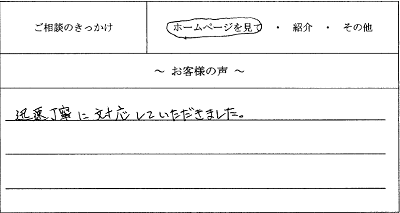 ご相談のきっかけ
ホームページを見て ・ 紹介 ・ その他
～ お客様の声 ～
迅速丁寧に対応していただきました。